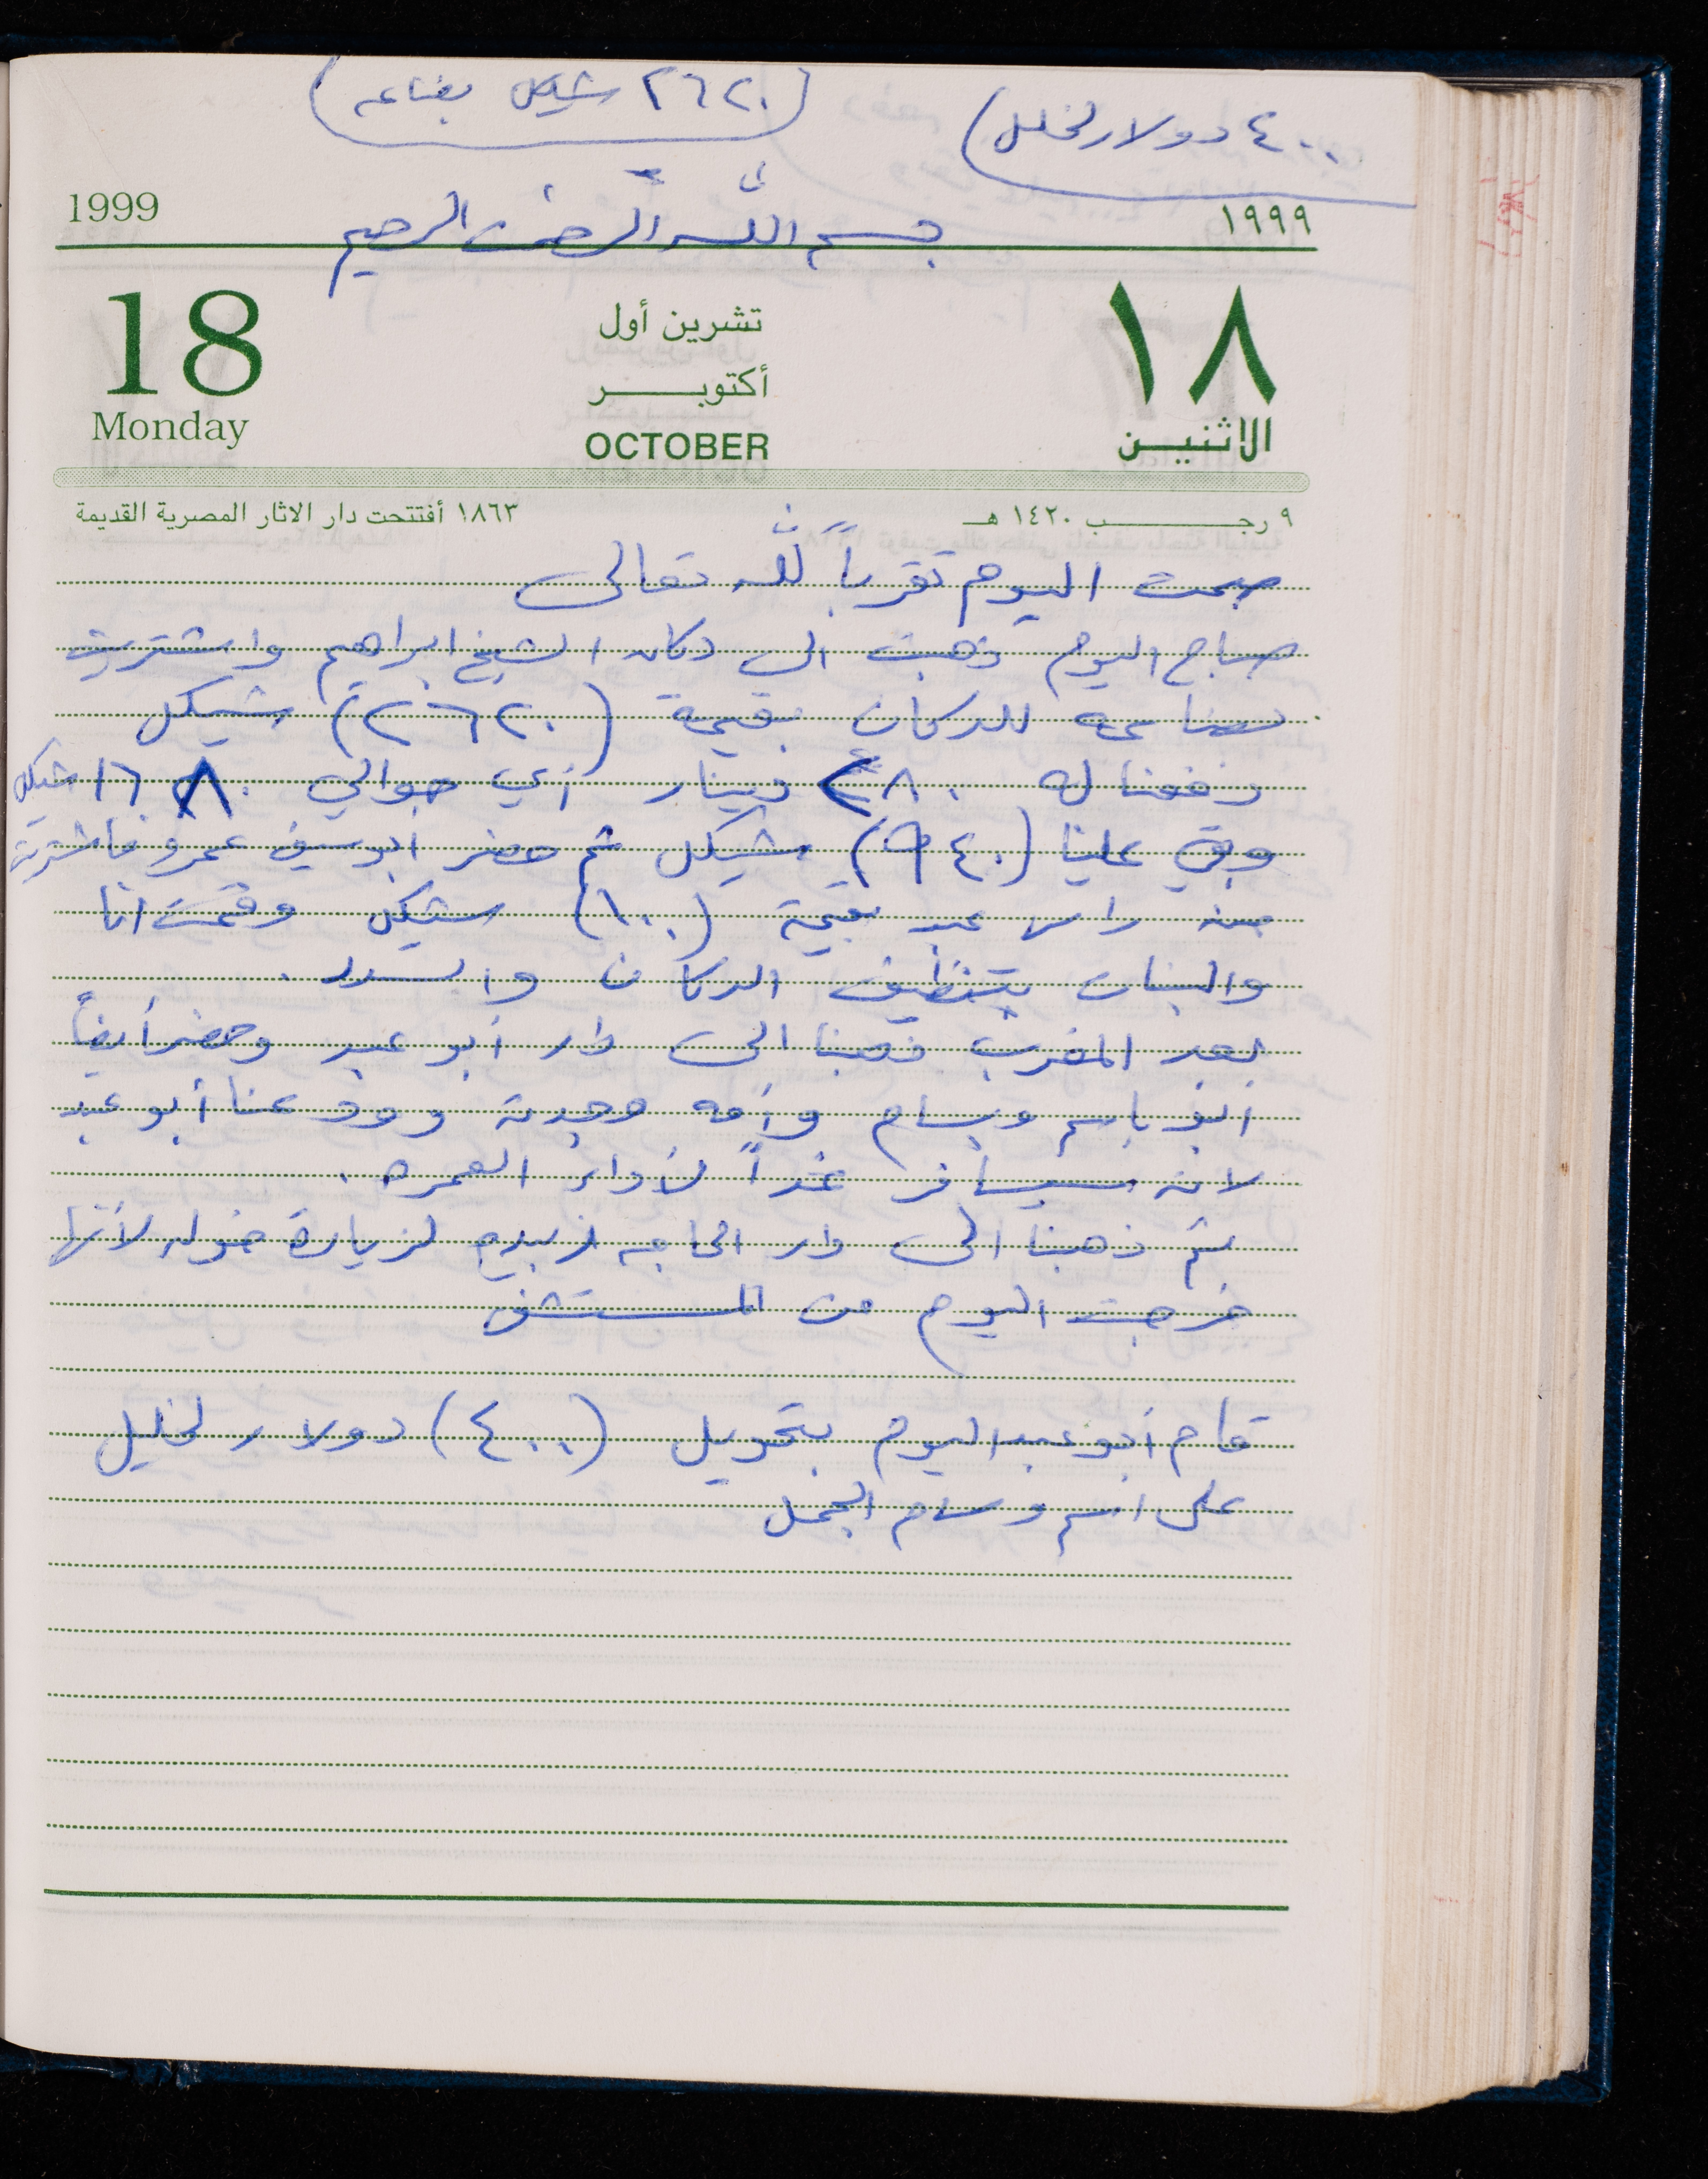 (٢٦٢٠ شيكل بضاعه)
٤٠٠ دولار لخليل)
1999
١٩٩٩
بسم الله الرحمن الرحيم
18
تشرين أول
١٨
أكتوبر
Monday
OCTOBER
الاثنين
٩ رجب ١٤٢٠ هـ
١٨٦٣ أفتتحت دار الاثار المصرية القديمة
صمت اليوم تقرباً لله تعالى
صباح اليوم ذهبت الى دكان الشيخ ابراهيم واشتريت
بضاعه للدكان بقيمة (٢٦٢٠) شيكل
دفعنا له ٢٨٠ دينار أي حوالي ١٦٨٠ شيكل
وبقي علينا (٩٤٠) شيكل ثم حضر ابو سيف عمرو فاشتريت
منه راس عبد بقيمة (١٠٠) شيكل وقمت انا
والبنات بتنظيف الدكان و
بعد المغرب ذهبنا الى دار أبو عبد وحضر أيضاً
ابو باسم وبسام وأمه وجدته وودعنا أبو عبد
لانه سيسافر غداً لأداء العمره.
ثم ذهبنا الى دار الحاجه لزيارة خوله لأنها
خرجت اليوم من المستشفى
قام أبو عبد اليوم بتحويل (٤٠٠) دولار لخليل
على اسم وسام الجمل